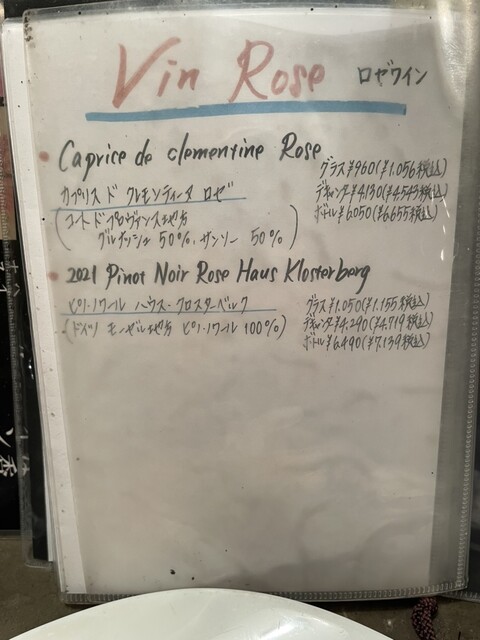 Vin Rose ロゼワイン
Caprice de clementine Rose
グラス ¥960(¥1.056税込)
カプリス ド クレモンティーヌ ロゼ
デキャンタ ¥4.130(¥4.543税込)
(コート ド プロヴァンス地方
ボトル ¥6.050(¥6.655税込)
グルナッシュ 50%、サンソー 50%)
2021 Pinot Noir Rose Haus Klosterberg
ピノ・ノワール ハウス・クロスターベルク
グラス ¥1.050(¥1.155税込)
(ドイツ モーゼル地方 ピノ・ノワール 100%)
デキャンタ ¥4.290(¥4.719税込)
ボトル ¥6.490(¥7.139税込)